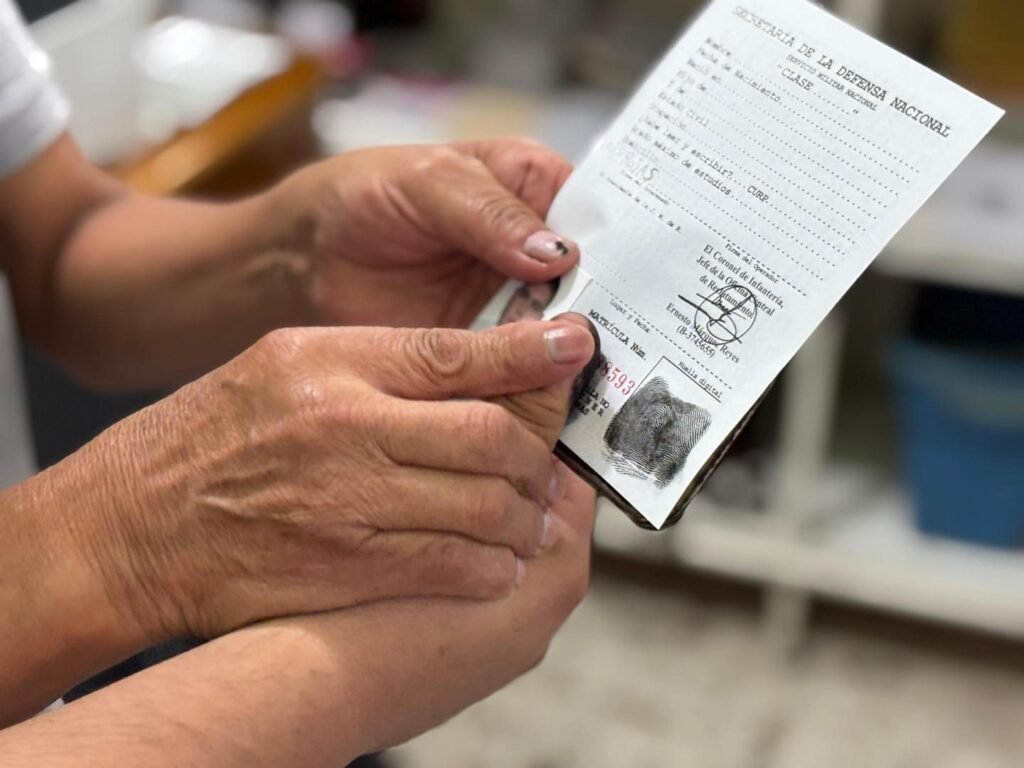 SECRETARÍA DE LA DEFENSA NACIONAL
SERVICIO MILITAR NACIONAL
"CLASE "
Nombre
Fecha de Nacimiento
Nació en
Hijo de
y de
Estado Civil
Ocupación
¿Sabe leer y escribir? CURP.
Grado máximo de estudios
Firma del Operador
El Coronel de Infantería,
Jefe de la Oficina Central
de Reclutamiento
Ernesto Márquez Reyes
(B-3745655)
Lugar y Fecha
MATRÍCULA Núm.
8593
Huella digital